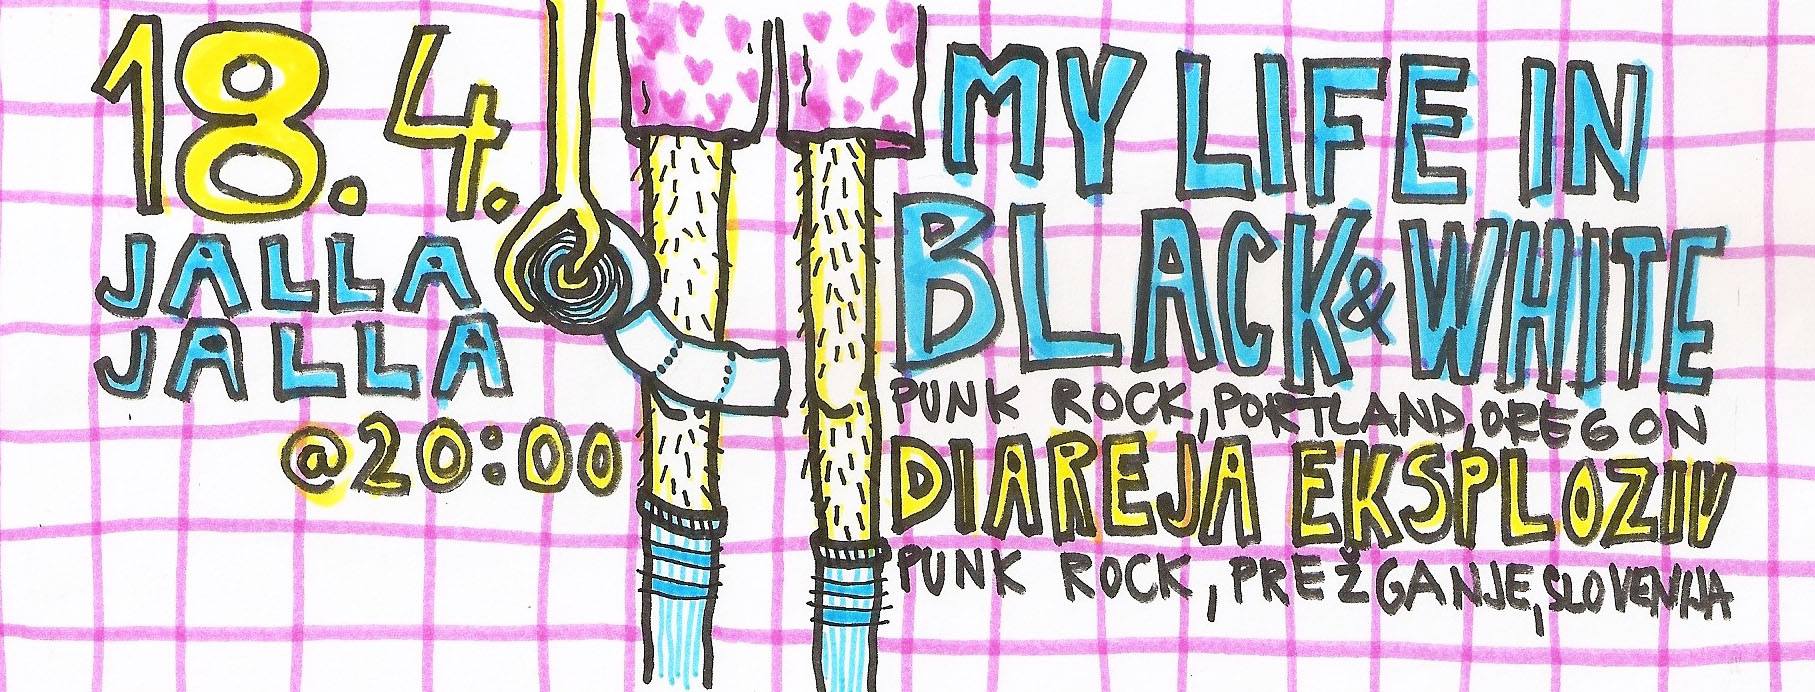 18.4.
JALLA
JALLA
@20:00
MY LIFE IN
BLACK & WHITE
PUNK ROCK, PORTLAND, OREGON
DIAREJA EKSPLOZIV
PUNK ROCK, PREŽGANJE, SLOVENIJA